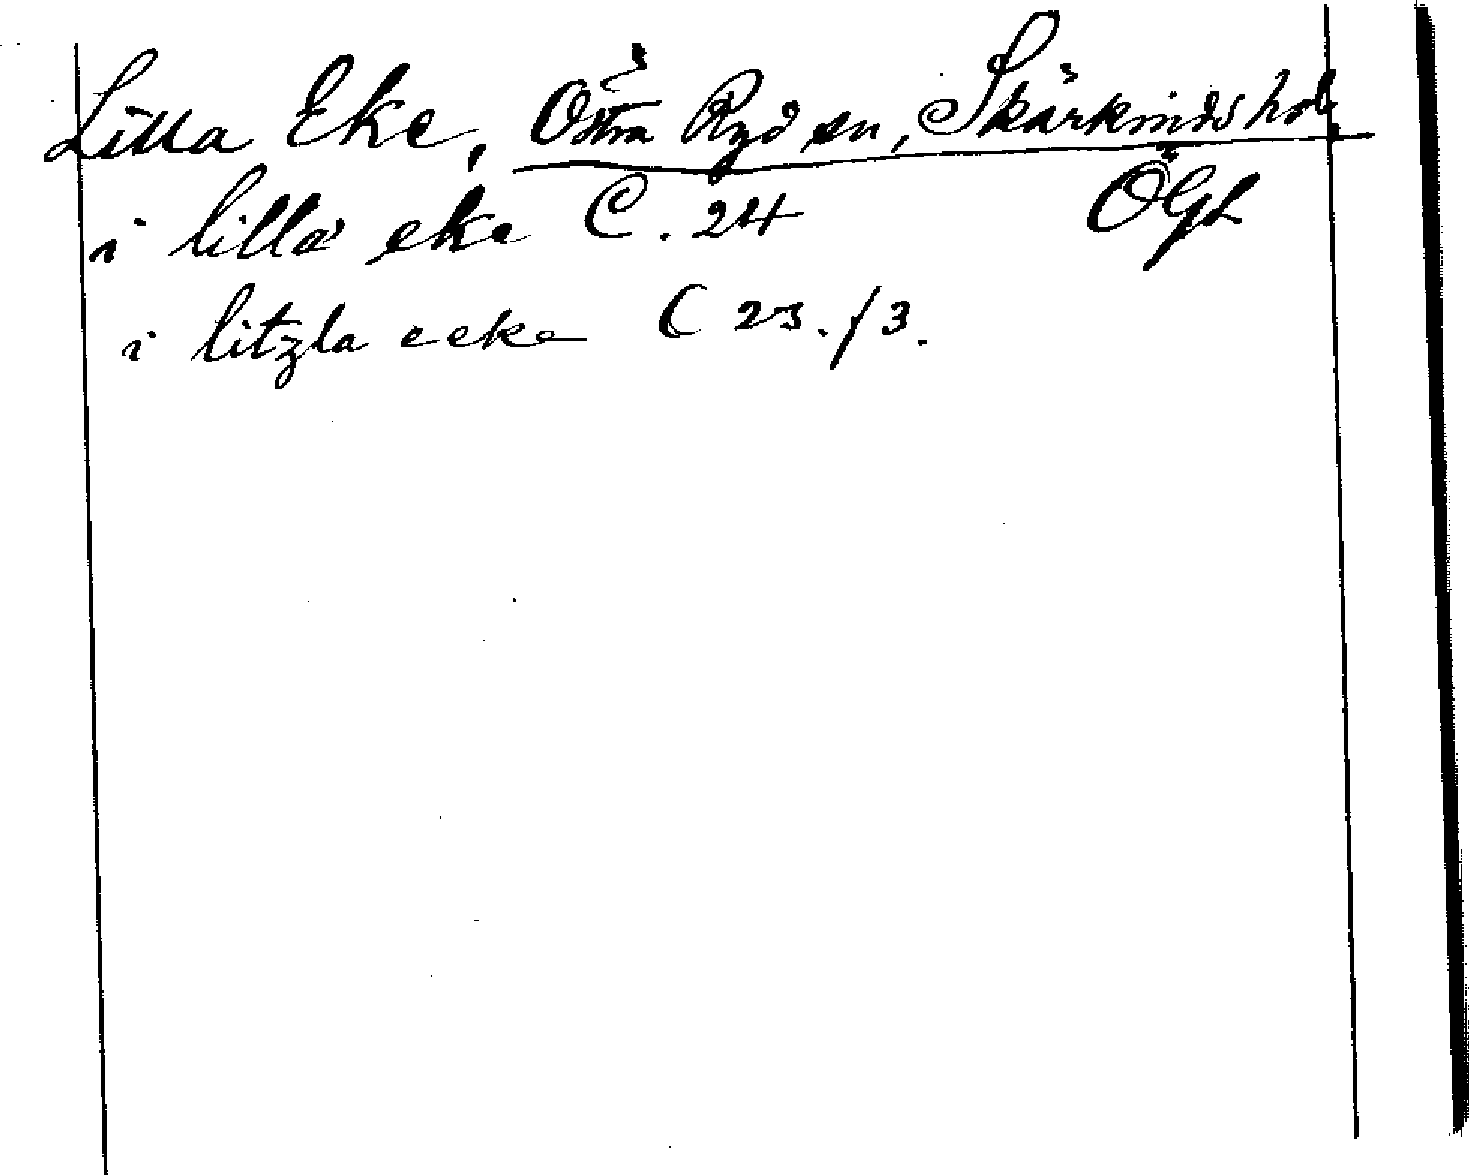 Lilla Eke, Östra Ryd sn, Skärkinds hd,
ÖGL
i lilla eke C. 24
i litzla eeke C 23. /3.